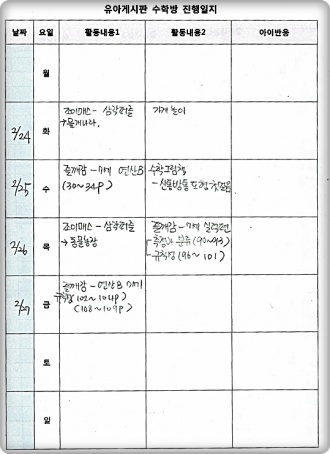 유아게시판 수학방 진행일지
날짜 요일 활동내용1 활동내용2 아이반응
월
2/24 화 조이매스 - 삼각퍼즐 가게 놀이
→ 물게나라.
2/25 수 즐깨감 - 7세 연산B 수학그림책
(30~34p) - 신통방통 도형 첫걸음
2/26 목 조이매스 - 삼각퍼즐 즐깨감 - 7세 실력편
→ 동물농장 - 측정과 분류 (90~93)
- 규칙성 (96~101)
2/27 금 즐깨감 - 연산B 7세
규칙성 102~104p)
(108~109p)
토
일